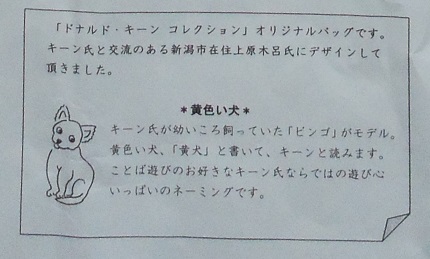 「ドナルド・キーン コレクション」オリジナルバッグです。
キーン氏と交流のある新潟市在住上原木呂氏にデザインして
頂きました。
＊黄色い犬＊
キーン氏が幼いころ飼っていた「ビンゴ」がモデル。
黄色い犬、「黄犬」と書いて、キーンと読みます。
ことば遊びのお好きなキーン氏ならではの遊び心
いっぱいのネーミングです。